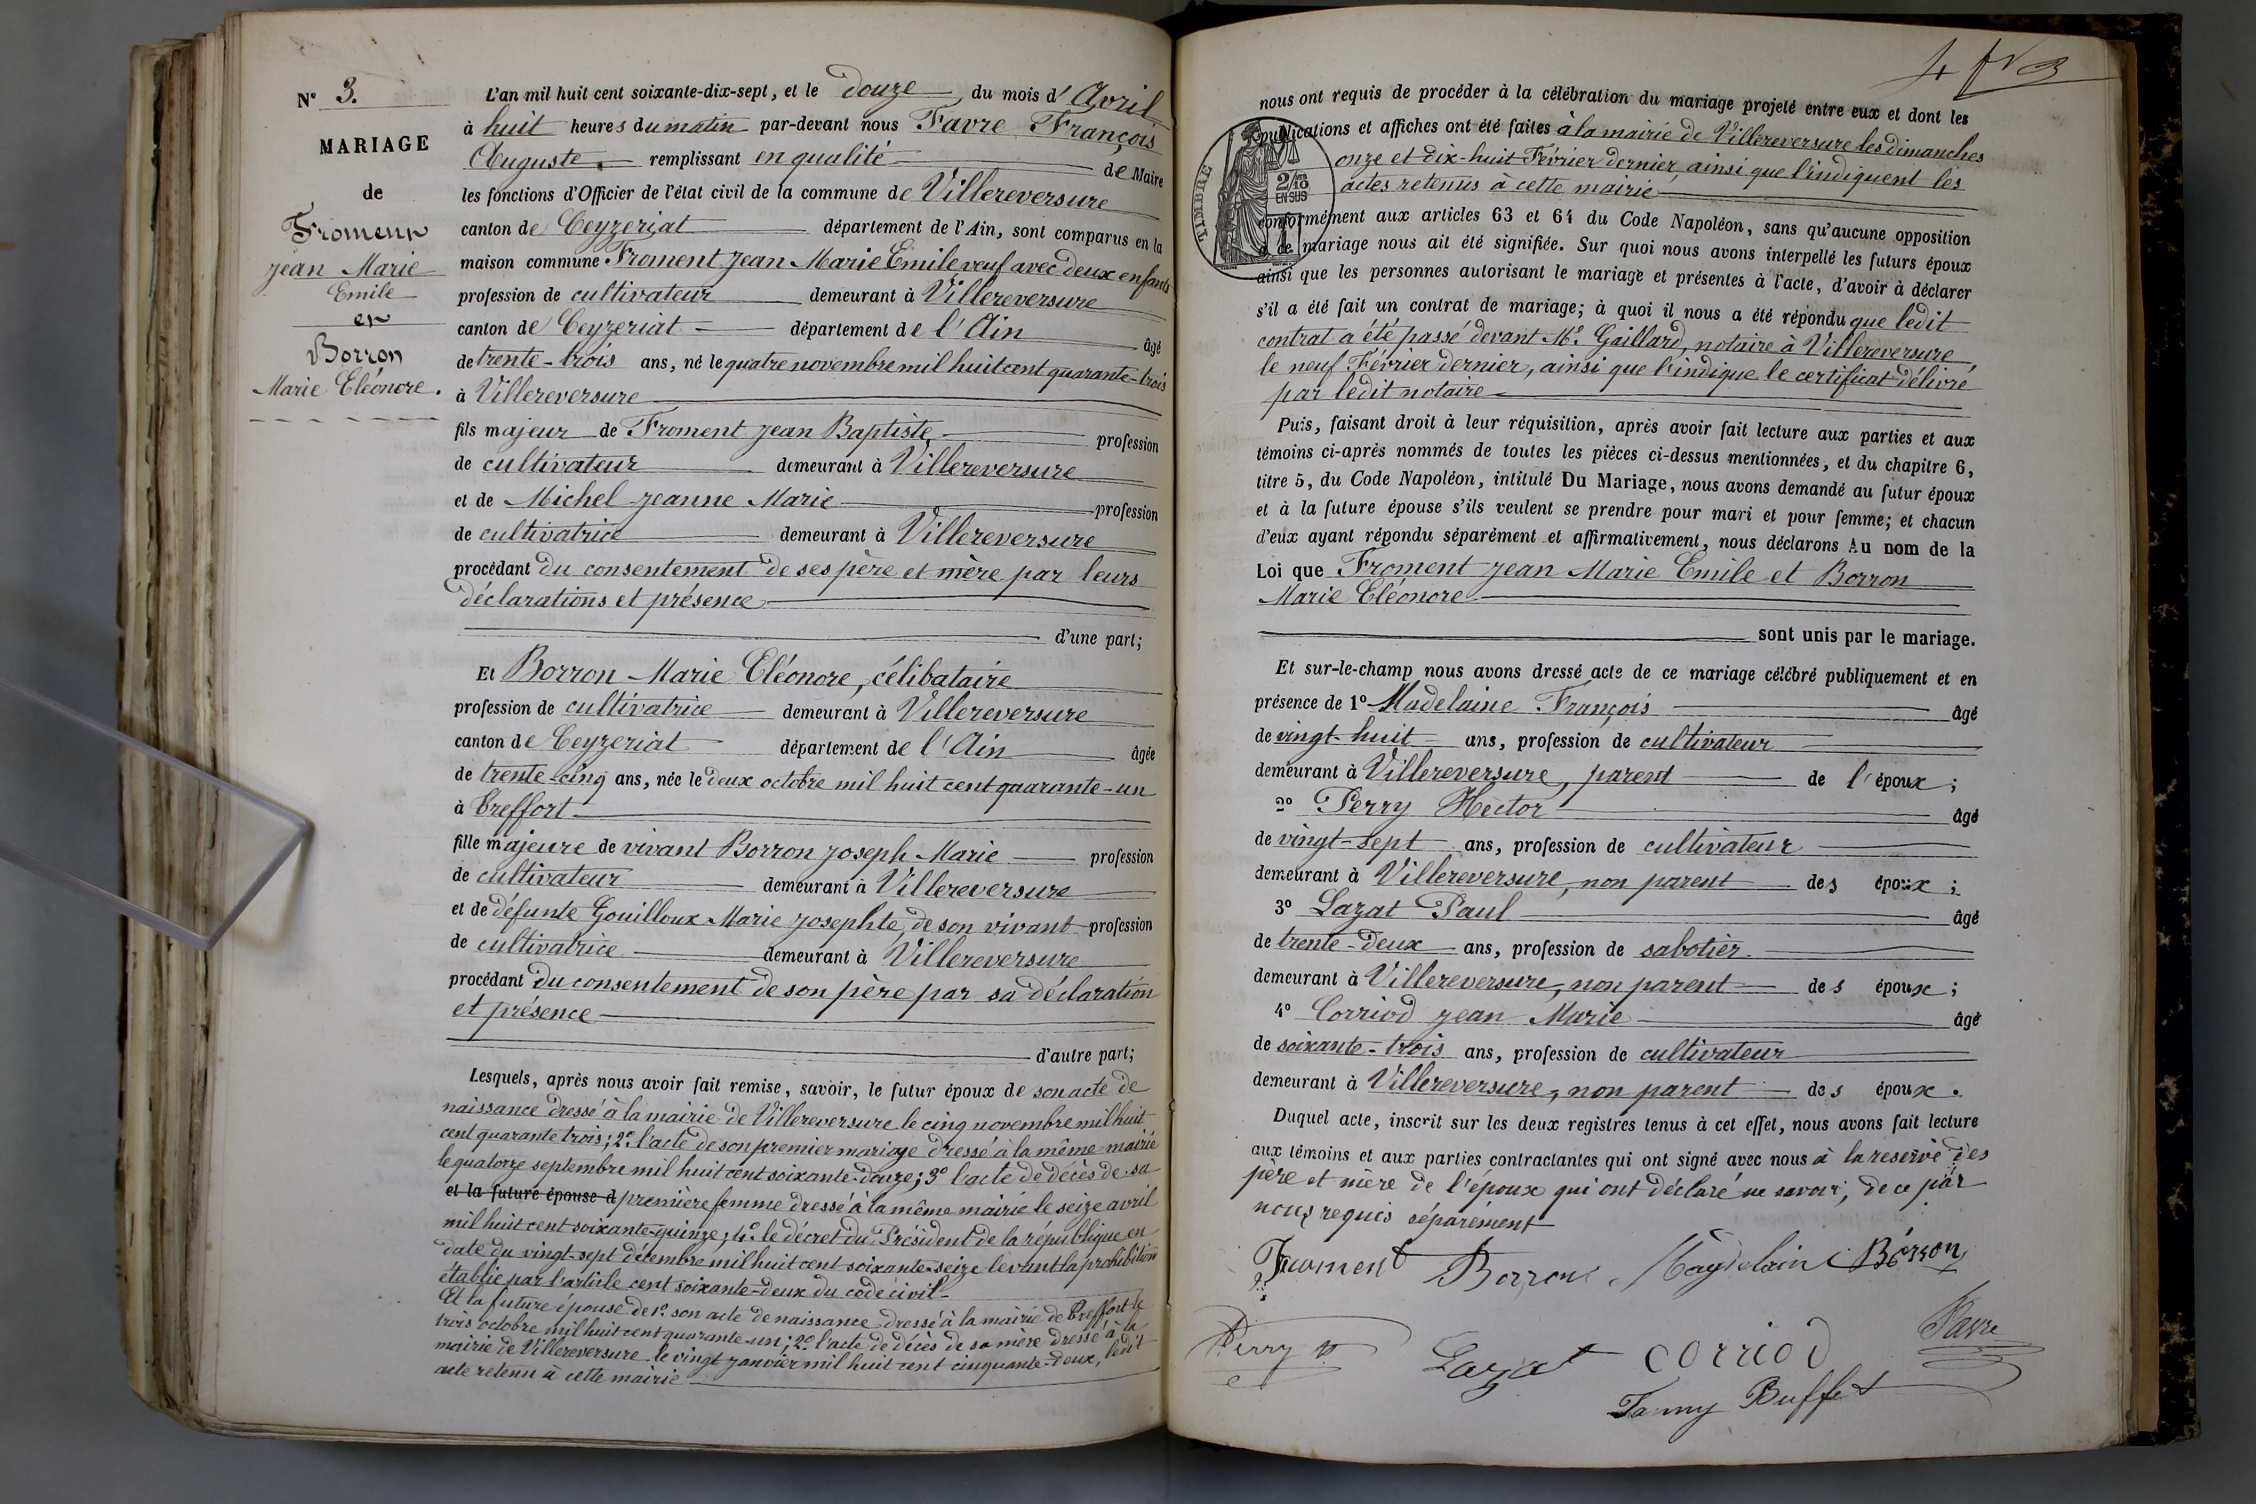 N° 3.
MARIAGE
de
Froment
Jean Marie
Emile
et
Borron
Marie Eléonore.
L'an mil huit cent soixante-dix-sept, et le douze du mois d'Avril
à huit heures du matin par-devant nous Favre François
Auguste remplissant en qualité de Maire
les fonctions d'Officier de l'état civil de la commune de Villereversure
canton de Ceyzeriat département de l'Ain, sont comparus en la
maison commune Froment Jean Marie Emile veuf avec deux enfants
profession de cultivateur demeurant à Villereversure
canton de Ceyzeriat département de l'Ain âgé
de trente-trois ans, né le quatre novembre mil huit cent quarante-trois
à Villereversure
fils majeur de Froment Jean Baptiste, profession
de cultivateur demeurant à Villereversure
et de Michel Jeanne Marie profession
de cultivatrice demeurant à Villereversure
procédant du consentement de ses père et mère par leurs
déclarations et présence
d'une part;
Et Borron Marie Eléonore, célibataire
profession de cultivatrice demeurant à Villereversure
canton de Ceyzeriat département de l'Ain âgée
de trente-cinq ans, née le deux octobre mil huit cent quarante-un
à Treffort
fille majeure de vivant Borron Joseph Marie profession
de cultivateur demeurant à Villereversure
et de défunte Gouilloux Marie Josephte, de son vivant profession
de cultivatrice demeurant à Villereversure
procédant du consentement de son père par sa déclaration
et présence
d'autre part;
Lesquels, après nous avoir fait remise, savoir, le futur époux de son acte de
naissance dressé à la mairie de Villereversure le cinq novembre mil huit
cent quarante trois; 2° l'acte de son premier mariage dressé à la même mairie
le quatorze septembre mil huit cent soixante-douze; 3° l'acte de décès de sa
et la future épouse d première femme dressé à la même mairie le seize avril
mil huit cent soixante-quinze; 4° le décret du Président de la république en
date du vingt-sept décembre mil huit cent soixante-seize levant la prohibition
établie par l'article cent soixante-deux du code civil
Et la future épouse de 1° son acte de naissance dressé à la mairie de Treffort le
trois octobre mil huit cent quarante-un; 2° l'acte de décès de sa mère dressé à la
mairie de Villereversure le vingt janvier mil huit cent cinquante-deux, ledit
acte retenu à cette mairie
nous ont requis de procéder à la célébration du mariage projeté entre eux et dont les
publications et affiches ont été faites à la mairie de Villereversure les dimanches
onze et dix-huit Février dernier, ainsi que l'indiquent les
actes retenus à cette mairie
TIMBRE
2/10
EN SUS
conformément aux articles 63 et 64 du Code Napoléon, sans qu'aucune opposition
à ce mariage nous ait été signifiée. Sur quoi nous avons interpellé les futurs époux
ainsi que les personnes autorisant le mariage et présentes à l'acte, d'avoir à déclarer
s'il a été fait un contrat de mariage; à quoi il nous a été répondu que ledit
contrat a été passé devant Me Gaillard, notaire à Villereversure
le neuf Février dernier, ainsi que l'indique le certificat délivré
par ledit notaire
Puis, faisant droit à leur réquisition, après avoir fait lecture aux parties et aux
témoins ci-après nommés de toutes les pièces ci-dessus mentionnées, et du chapitre 6,
titre 5, du Code Napoléon, intitulé Du Mariage, nous avons demandé au futur époux
et à la future épouse s'ils veulent se prendre pour mari et pour femme; et chacun
d'eux ayant répondu séparément et affirmativement, nous déclarons Au nom de la
Loi que Froment Jean Marie Emile et Borron
Marie Eléonore
sont unis par le mariage.
Et sur-le-champ nous avons dressé acte de ce mariage célébré publiquement et en
présence de 1° Madelaine François âgé
de vingt-huit ans, profession de cultivateur
demeurant à Villereversure, parent de l'époux;
2° Perry Hector âgé
de vingt-sept ans, profession de cultivateur
demeurant à Villereversure, non parent des époux;
3° Lazat Paul âgé
de trente-deux ans, profession de sabotier
demeurant à Villereversure, non parent des époux;
4° Corriod Jean Marie âgé
de soixante-trois ans, profession de cultivateur
demeurant à Villereversure, non parent des époux.
Duquel acte, inscrit sur les deux registres tenus à cet effet, nous avons fait lecture
aux témoins et aux parties contractantes qui ont signé avec nous à la reserve des
père et mère de l'époux qui ont déclaré ne savoir, de ce par
nous requis séparément
Froment Borron Magdelain Borron
Perry h. Lazat corriod Favre
Fanny Buffet